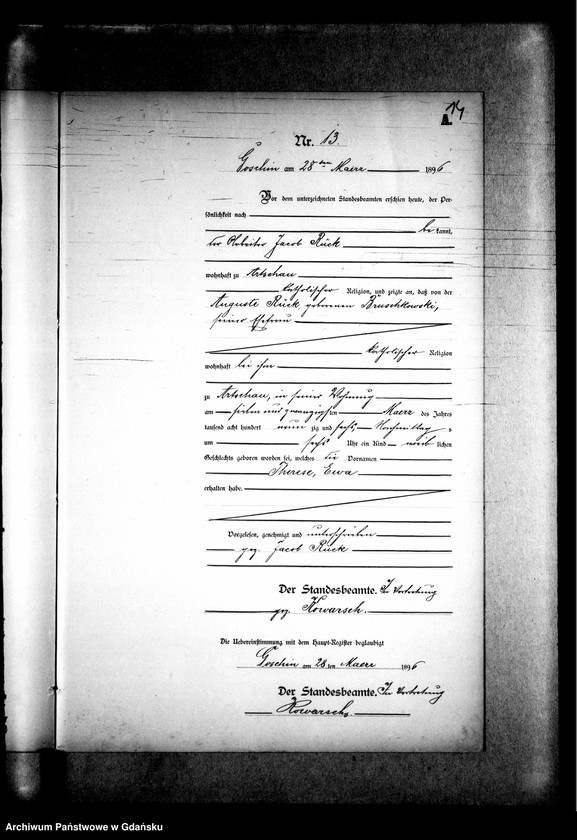 A.
14
Nr. 13.
Goschin am 28ten Maerz 1896
Vor dem unterzeichneten Standesbeamten erschien heute, der Per-
sönlichkeit nach
be kannt,
der Arbeiter Jacob Rück
wohnhaft zu Artschau
katholischer Religion, und zeigte an, daß von der
Auguste Rück geborenen Bruschkowski,
seiner Ehefrau
katholischer Religion
wohnhaft bei ihm
zu Artschau, in seiner Wohnung
am sieben und zwanzigsten Maerz des Jahres
tausend acht hundert neun zig und sechs, Nachmittag s
um sechs Uhr ein Kind weib lichen
Geschlechts geboren worden sei, welches die Vornamen
Therese, Ewa
erhalten habe.
Vorgelesen, genehmigt und unterschrieben
gez. Jacob Rück
Der Standesbeamte. In Vertretung
gez. Kowarsch.
Die Uebereinstimmung mit dem Haupt-Register beglaubigt
Goschin am 28 ten Maerz 1896
Der Standesbeamte. In Vertretung
Kowarsch.
Archiwum Państwowe w Gdańsku